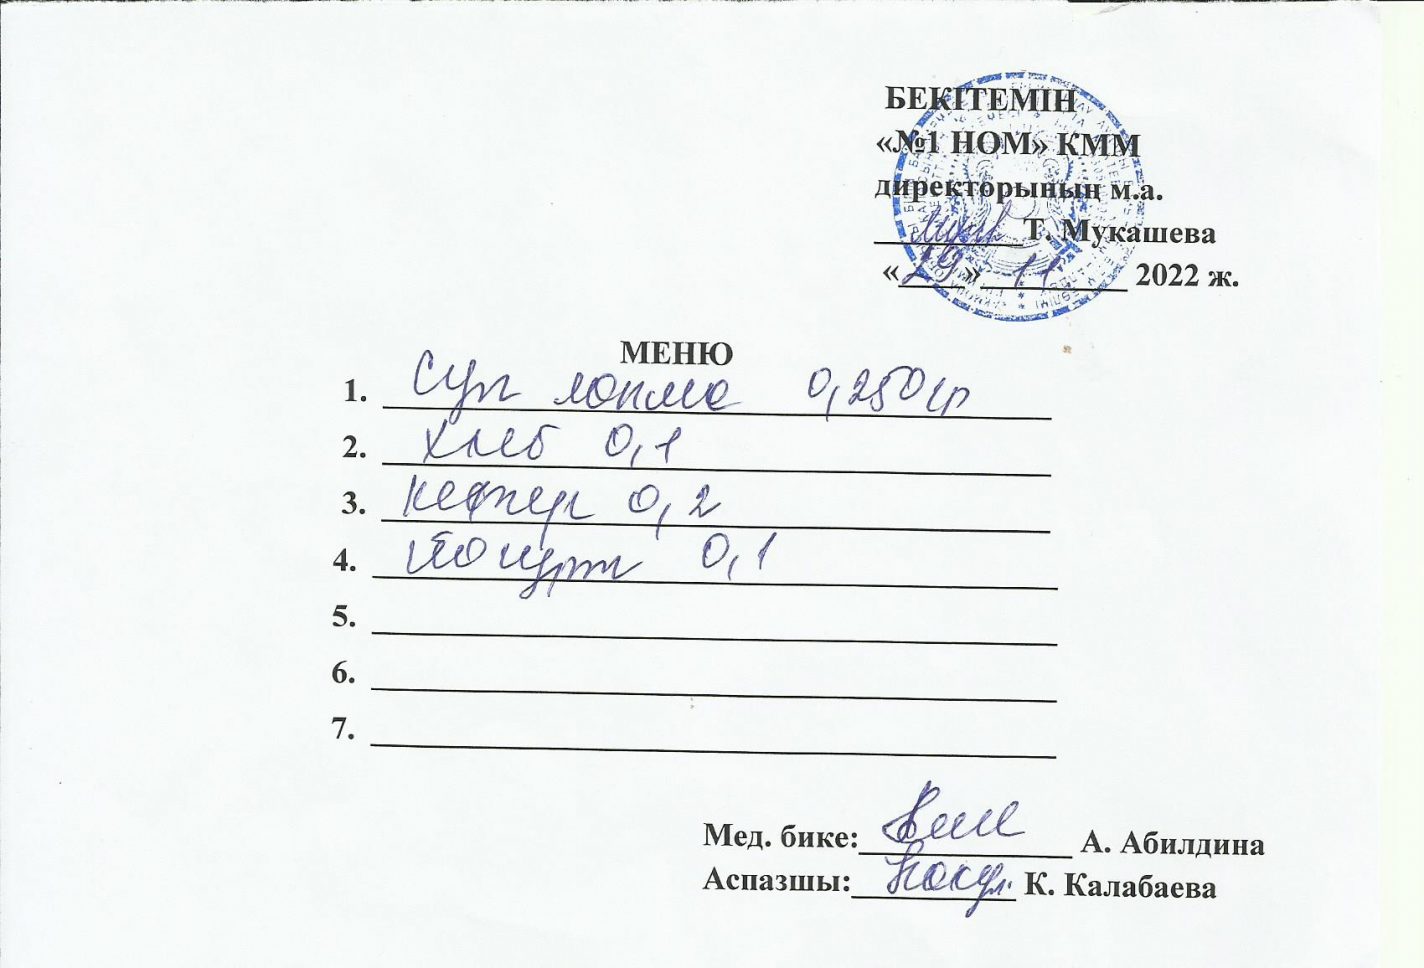 БЕКІТЕМІН
«№1 НОМ» КММ
директорының м.а.
Т. Мукашева
«29» 11 2022 ж.
МЕНЮ
1. Суп лапша 0,250 гр
2. Хлеб 0,1
3. Кефир 0,2
4. Йогурт 0,1
5.
6.
7.
Мед. бике: А. Абилдина
Аспазшы: К. Калабаева